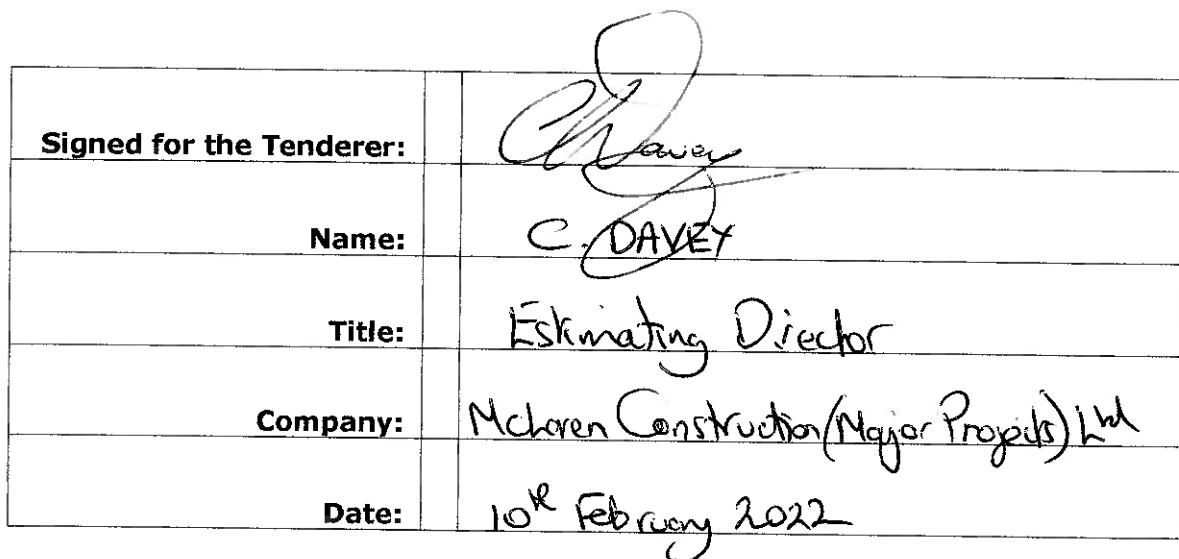 Signed for the Tenderer: C Davey
Name: C. DAVEY
Title: Estimating Director
Company: McLaren Construction (Major Projects) Ltd
Date: 10th February 2022